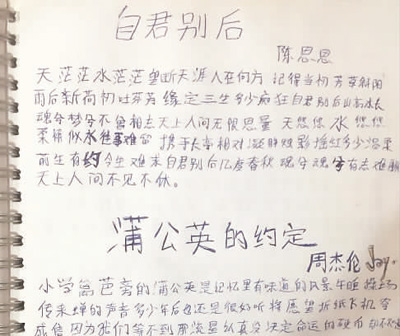 自君别后
陈思思
天茫茫水茫茫望断天涯人在何方 记得当初芳草斜阳
雨后新荷初吐芬芳 缘定三生多少痴狂自君别后山高水长
魂兮梦兮不曾相忘天上人间无限思量 天悠悠水悠悠
柔情似水往事难留 携手长亭相对凝眸烛影摇红多少温柔
前生有约今生难求自君别后几度春秋 魂兮魂兮有志难酬
天上人间不见不休。
蒲公英的约定
周杰伦 Jay.
小学篱芭旁的蒲公英是记忆里有味道的风景午睡操场
传来蝉的声音多少年后也还是很好听将愿望折纸飞机寄
成信 因为我们等不到那流星认真投决定命运的硬币却不知